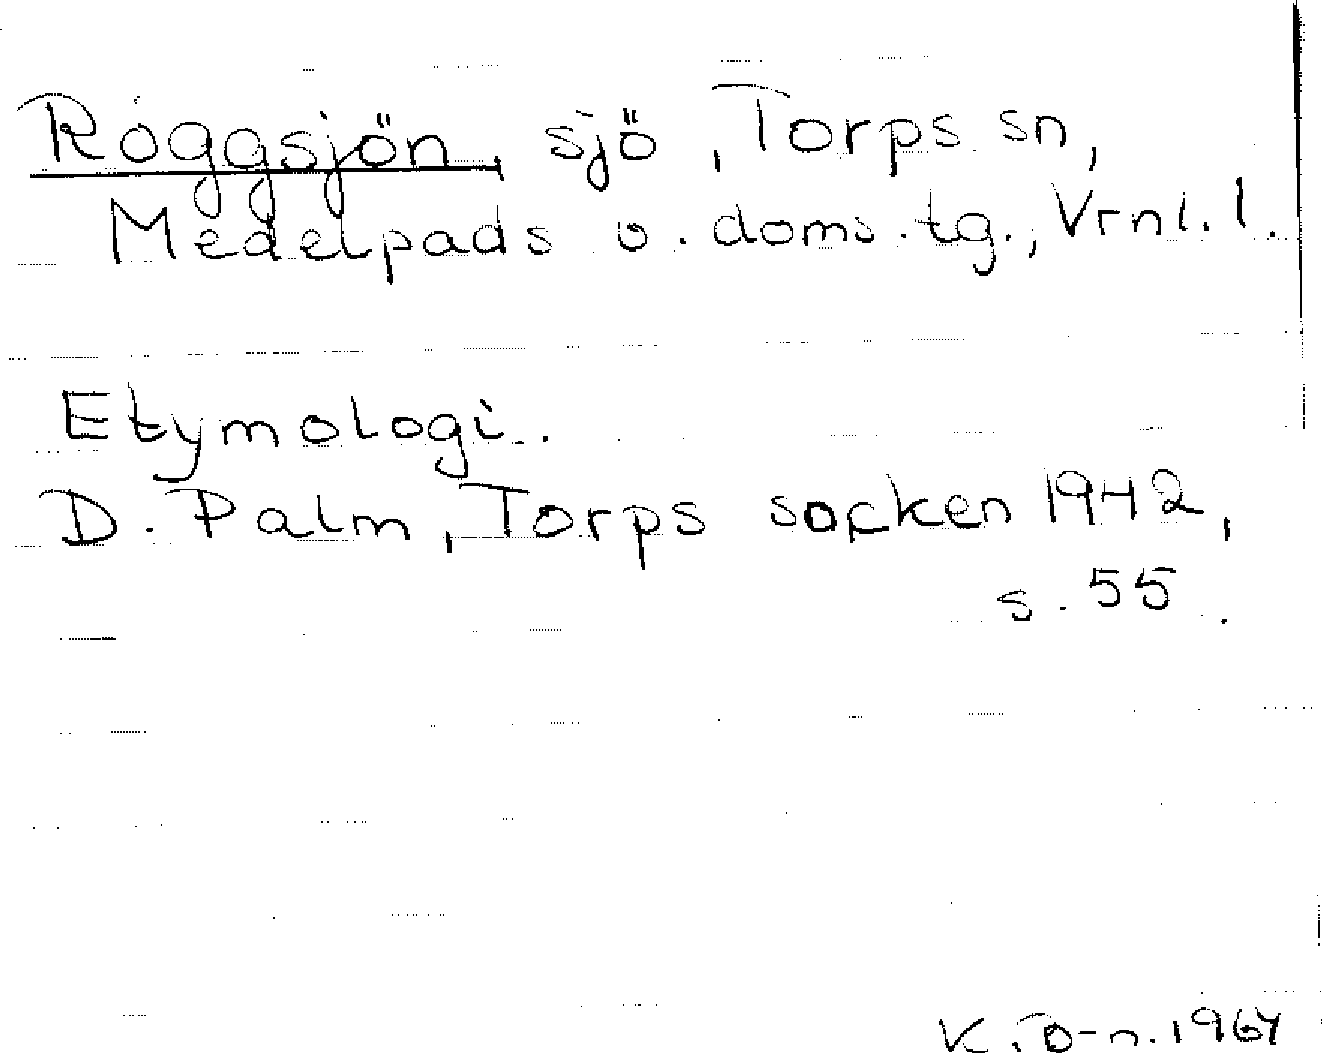 Röggsjön, sjö, Torps sn,
Medelpads v. doms. tg., Vrnl. l.
Etymologi.
D. Palm, Torps socken 1942,
s. 55.
1964